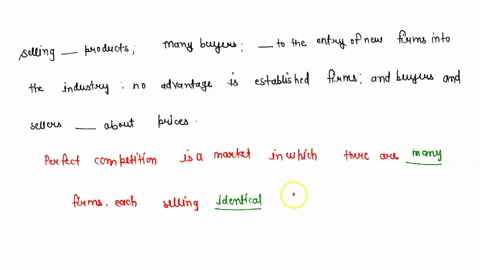 selling __ products; many buyers; __ to the entry of new firms into
the industry; no advantage is established firms; and buyers and
sellers __ about prices.
Perfect competition is a market in which there are many
firms. each selling identical